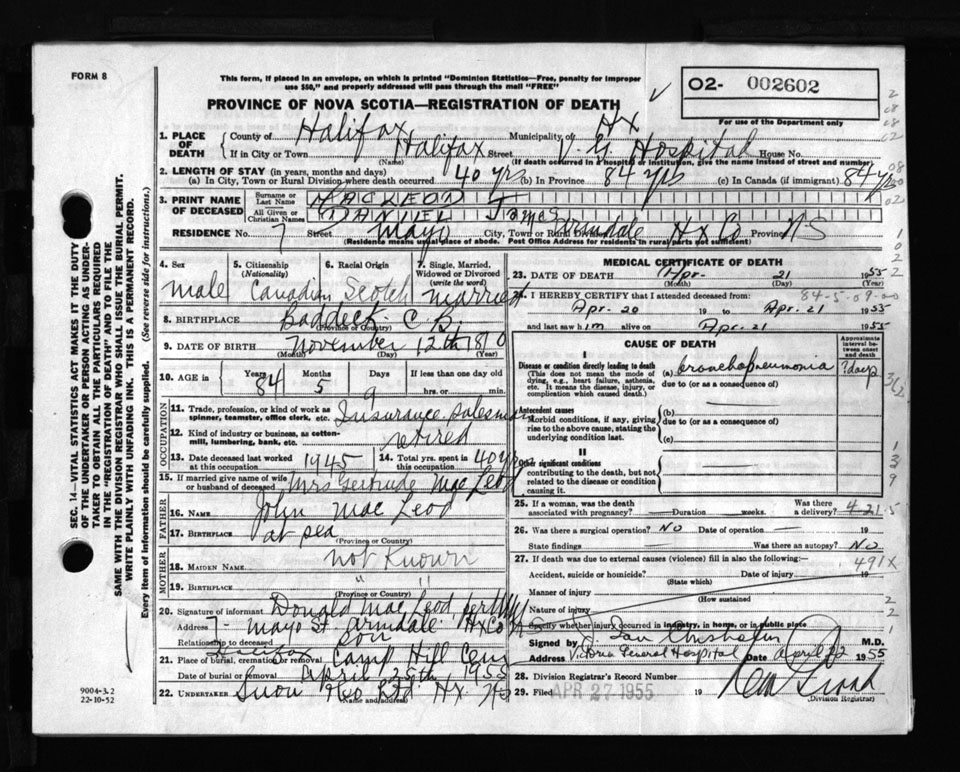 FORM 8
This form, if placed in an envelope, on which is printed "Dominion Statistics—Free, penalty for improper
use $50," and properly addressed will pass through the mail "FREE"
PROVINCE OF NOVA SCOTIA—REGISTRATION OF DEATH
O2- 002602
For use of the Department only
1. PLACE OF DEATH { County of Halifax Municipality of Hx
If in City or Town Halifax Street V. G. Hospital House No.
(Name) (If death occurred in a hospital or institution, give the name instead of street and number)
2. LENGTH OF STAY (in years, months and days)
(a) In City, Town or Rural Division where death occurred 40 yrs (b) In Province 84 yrs (c) In Canada (if immigrant) 84 yrs
3. PRINT NAME OF DECEASED { Surname or Last Name MACLEOD
All Given or Christian Names DANIEL James
RESIDENCE No. 7 Street Mayo City, Town or Rural Division Armdale Hx Co Province NS
(Residence means usual place of abode. Post Office Address for residents in rural parts not sufficient)
4. Sex male
5. Citizenship (Nationality) Canadian
6. Racial Origin Scotch
7. Single, Married, Widowed or Divorced (write the word) Married
8. BIRTHPLACE Baddeck C.B.
(Province or Country)
9. DATE OF BIRTH November 12th 1870
(Month) (Day) (Year)
10. AGE in Years 84 Months 5 Days 9 If less than one day old hrs. or min.
OCCUPATION
11. Trade, profession, or kind of work as spinner, teamster, office clerk, etc. Insurance salesman
12. Kind of industry or business, as cotton-mill, lumbering, bank, etc. retired
13. Date deceased last worked at this occupation 1945
14. Total yrs. spent in this occupation 40 yrs
15. If married give name of wife or husband of deceased Mrs Gertrude MacLeod
FATHER
16. NAME John MacLeod
17. BIRTHPLACE at sea
(Province or Country)
MOTHER
18. MAIDEN NAME not Known
19. BIRTHPLACE " "
(Province or Country)
20. Signature of informant Donald MacLeod
Address 7 - Mayo St. Armdale Hx Co NS
Relationship to deceased son
21. Place of burial, cremation or removal Halifax Camp Hill Cem
Date of burial or removal April 25th, 1955
22. UNDERTAKER Snow & Co Ltd Hx NS
(Name and address)
MEDICAL CERTIFICATE OF DEATH
23. DATE OF DEATH Apr. 21 1955
(Month) (Day)
24. I HEREBY CERTIFY that I attended deceased from: 84-5-09-00
Apr. 20 19 to Apr. 21 1955
and last saw him alive on Apr. 21 1955
CAUSE OF DEATH
Approximate interval between onset and death
I
Disease or condition directly leading to death
(This does not mean the mode of dying, e.g., heart failure, asthenia, etc. It means the disease, injury, or complication which caused death.)
(a) bronchopneumonia ? days
due to (or as a consequence of)
Antecedent causes
Morbid conditions, if any, giving rise to the above cause, stating the underlying condition last.
(b)
due to (or as a consequence of)
(c)
II
Other significant conditions
contributing to the death, but not related to the disease or condition causing it.
25. If a woman, was the death associated with pregnancy? Duration weeks. Was there a delivery? 421.5
26. Was there a surgical operation? No Date of operation
State findings Was there an autopsy? No
27. If death was due to external causes (violence) fill in also the following:— 491X
Accident, suicide or homicide? Date of injury 19
(State which)
Manner of injury
(How sustained
Nature of injury
Specify whether injury occurred in industry, in home, or in public place
Signed by J. Ian Chisholm M.D.
Address Victoria General Hospital Date April 22 1955
28. Division Registrar's Record Number
29. Filed APR 27 1955 19
(Division Registrar)
SEC. 14—VITAL STATISTICS ACT MAKES IT THE DUTY
OF THE UNDERTAKER OR PERSON ACTING AS UNDER-
TAKER TO OBTAIN ALL THE PARTICULARS REQUIRED
IN THE "REGISTRATION OF DEATH" AND TO FILE THE
SAME WITH THE DIVISION REGISTRAR WHO SHALL ISSUE THE BURIAL PERMIT.
WRITE PLAINLY WITH UNFADING INK. THIS IS A PERMANENT RECORD.
Every item of information should be carefully supplied. (See reverse side for instructions.)
9004-3.2
22-10-52